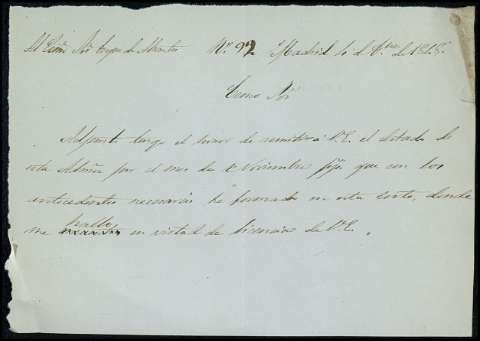 Al Exmo Sor Nº 92 Madrid 6 de Dbre de 1848.
Exmo Sor
Adjunto tengo el honor de remitir á V.E. el estado de
esta por el mes de Noviembre que con los
antecedentes necesarios he formado en esta Corte, donde
hallo
me en virtud de licencia de V.E.